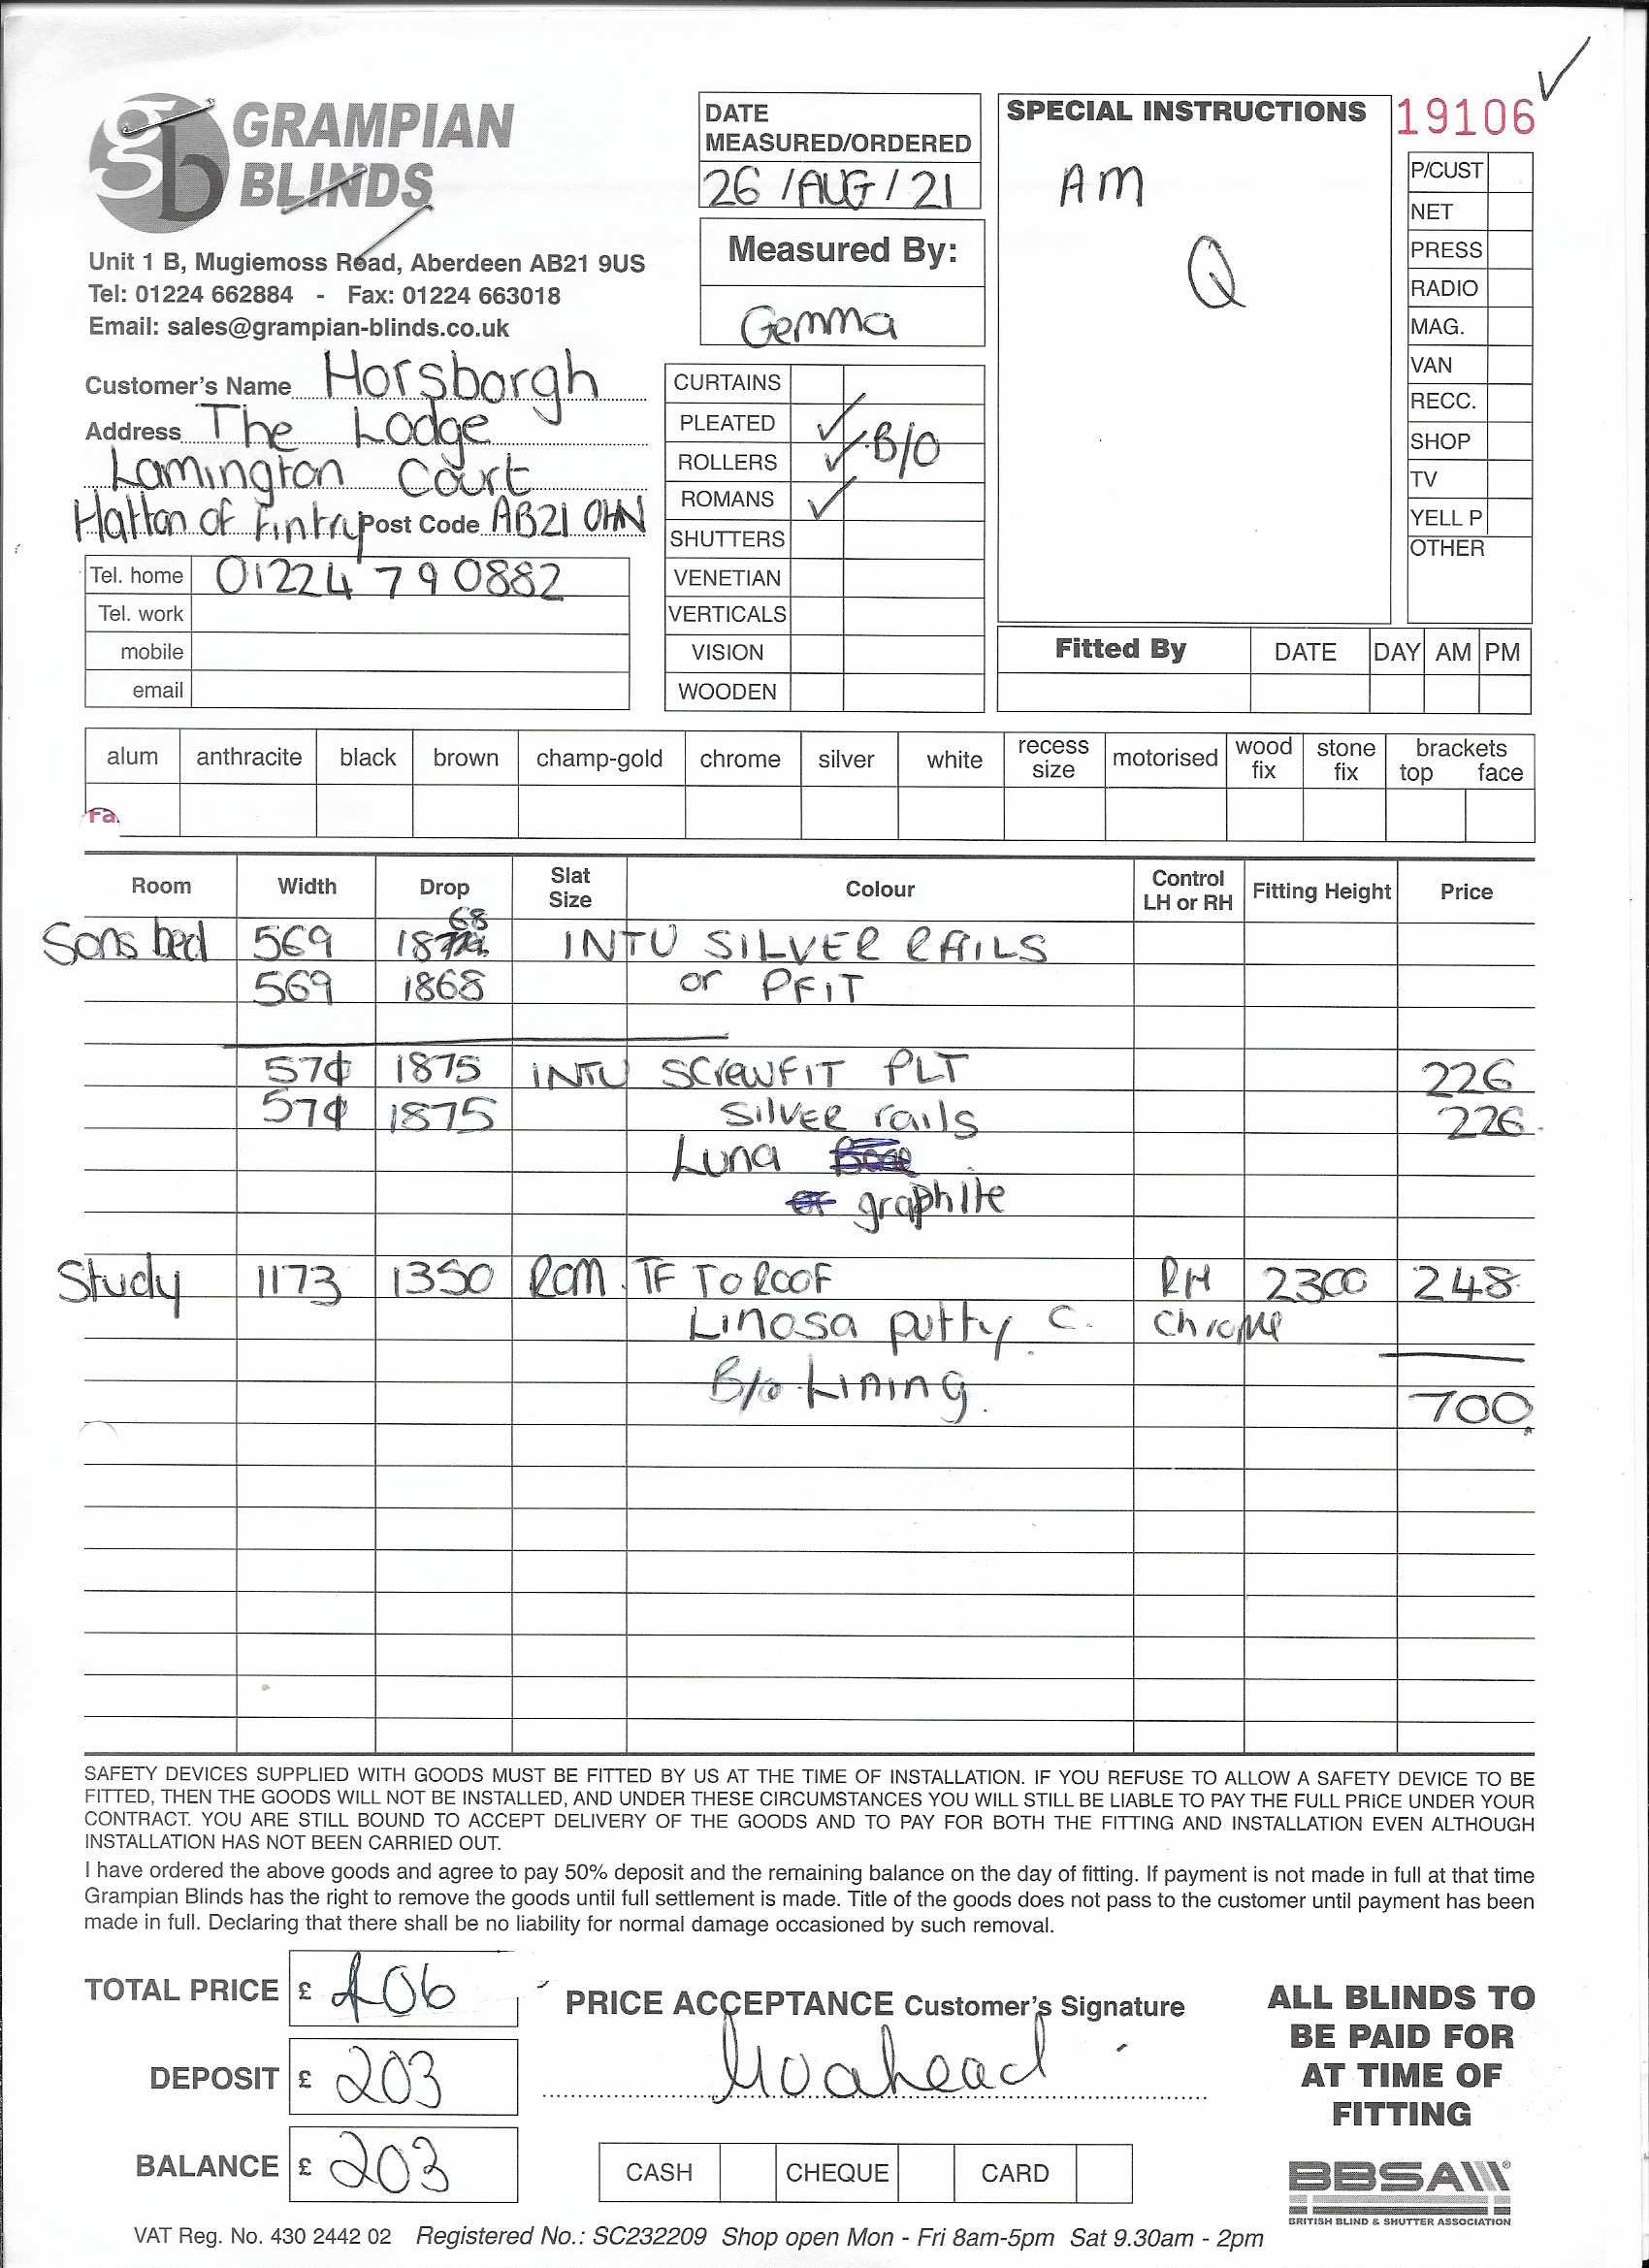 GRAMPIAN
BLINDS
Unit 1 B, Mugiemoss Road, Aberdeen AB21 9US
Tel: 01224 662884 - Fax: 01224 663018
Email: sales@grampian-blinds.co.uk
Customer's Name Horsborgh
Address The Lodge
Lamington Court
Hatton of Fintry Post Code AB21 0HN
Tel. home 01224 790882
Tel. work
mobile
email
DATE
MEASURED/ORDERED
26/AUG/21
Measured By:
Gemma
CURTAINS
PLEATED ✓
ROLLERS ✓ B/O
ROMANS ✓
SHUTTERS
VENETIAN
VERTICALS
VISION
WOODEN
SPECIAL INSTRUCTIONS
AM
Q
19106 ✓
P/CUST
NET
PRESS
RADIO
MAG.
VAN
RECC.
SHOP
TV
YELL P
OTHER
Fitted By DATE DAY AM PM
alum anthracite black brown champ-gold chrome silver white recess size motorised wood fix stone fix brackets top face
Fa.
Room Width Drop Slat Size Colour Control LH or RH Fitting Height Price
Sons bed 569 1868 INTU SILVER RAILS
569 1868 or PFIT
570 1875 INTU SCREWFIT PLT 226
570 1875 SILVER rails 226
Luna
graphite
Study 1173 1350 ROM. TF TO ROOF RH 2300 248
Linosa putty C. Chrome
B/o Lining. 700
SAFETY DEVICES SUPPLIED WITH GOODS MUST BE FITTED BY US AT THE TIME OF INSTALLATION. IF YOU REFUSE TO ALLOW A SAFETY DEVICE TO BE
FITTED, THEN THE GOODS WILL NOT BE INSTALLED, AND UNDER THESE CIRCUMSTANCES YOU WILL STILL BE LIABLE TO PAY THE FULL PRICE UNDER YOUR
CONTRACT. YOU ARE STILL BOUND TO ACCEPT DELIVERY OF THE GOODS AND TO PAY FOR BOTH THE FITTING AND INSTALLATION EVEN ALTHOUGH
INSTALLATION HAS NOT BEEN CARRIED OUT.
I have ordered the above goods and agree to pay 50% deposit and the remaining balance on the day of fitting. If payment is not made in full at that time
Grampian Blinds has the right to remove the goods until full settlement is made. Title of the goods does not pass to the customer until payment has been
made in full. Declaring that there shall be no liability for normal damage occasioned by such removal.
TOTAL PRICE £ 406
DEPOSIT £ 203
BALANCE £ 203
PRICE ACCEPTANCE Customer's Signature
CASH CHEQUE CARD
ALL BLINDS TO
BE PAID FOR
AT TIME OF
FITTING
BBSA
BRITISH BLIND & SHUTTER ASSOCIATION
VAT Reg. No. 430 2442 02 Registered No.: SC232209 Shop open Mon - Fri 8am-5pm Sat 9.30am - 2pm